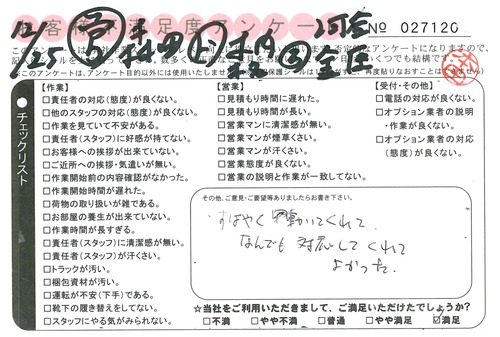 お客様満足度アンケート
№ 027120
チェックリスト
【作業】
□責任者の対応(態度)が良くない。
□他のスタッフの対応(態度)が良くない。
□作業を見ていて不安がある。
□責任者(スタッフ)に好感が持てない。
□お客様への挨拶が出来ていない。
□ご近所への挨拶・気遣いが無い。
□作業開始前の内容確認がなかった。
□作業開始時間が遅れた。
□荷物の取り扱いが雑である。
□お部屋の養生が出来ていない。
□作業時間が長すぎる。
□責任者(スタッフ)に清潔感が無い。
□責任者(スタッフ)が汗くさい。
□トラックが汚い。
□梱包資材が汚い。
□運転が不安(下手)である。
□靴下の履き替えをしてない。
□スタッフにやる気がみられない。
【営業】
□見積もり時間に遅れた。
□見積もり時間が長い。
□営業マンに清潔感が無い。
□営業マンが煙草くさい。
□営業マンが汗くさい。
□営業態度が良くない。
□営業の説明と作業が一致してない。
【受付・その他】
□電話の対応が良くない。
□オプション業者の説明
・作業が良くない。
□オプション業者の対応
(態度)が良くない。
その他、ご意見・ご要望等ありましたらお書き下さい。
すばやく動いてくれて
なんでも対応してくれて
よかった。
☆当社をご利用いただきまして、ご満足いただけたでしょうか?
□不満 □やや不満 □普通 □やや満足 ☑満足